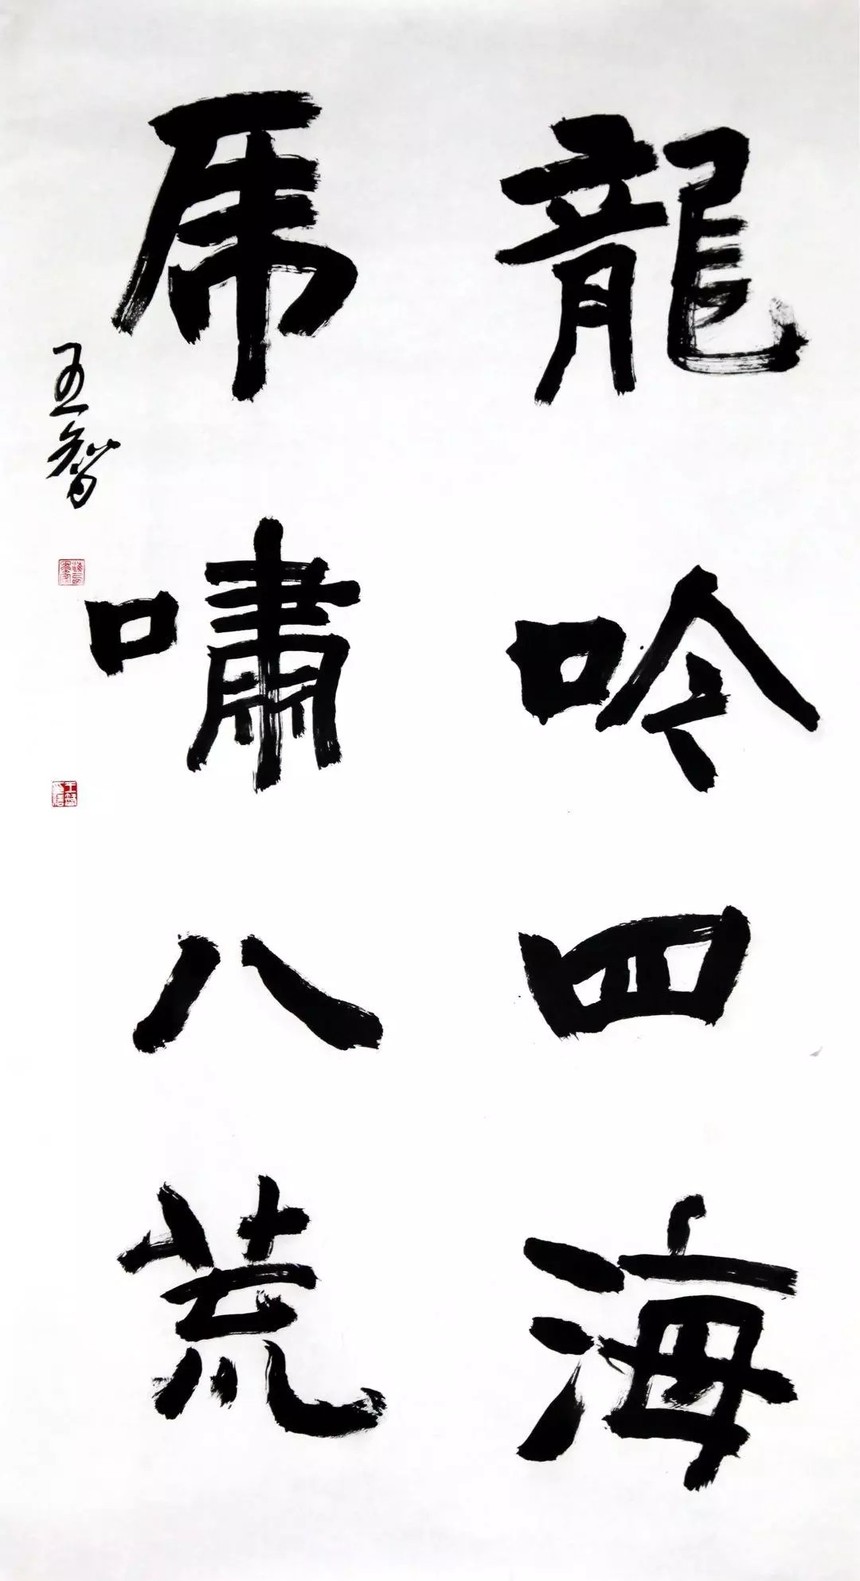 龍吟四海
虎嘯八荒
王智